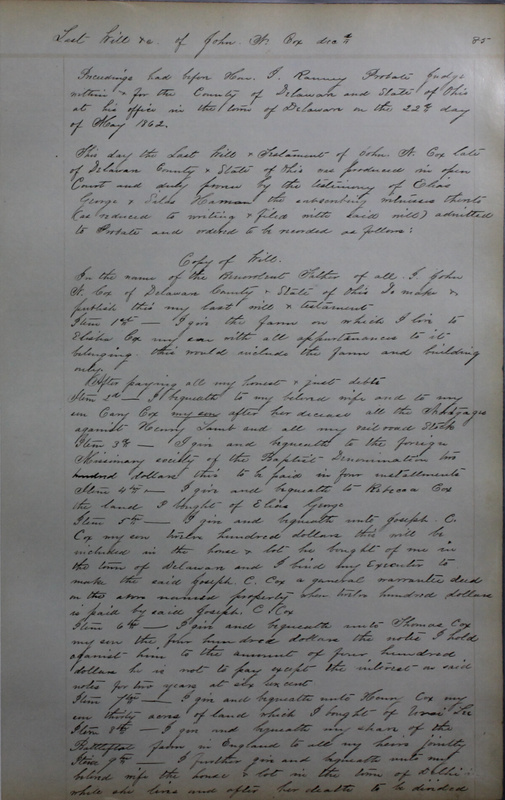 Last Will &c. of John W. Cox dec'd 85
Proceedings had before Hon. T. Ranney Probate Judge
within & for the County of Delaware and State of Ohio
at his office in the town of Delaware on the 22nd day
of May 1862.
This day the Last Will & Testament of John W. Cox late
of Delaware County & State of Ohio was produced in open
Court and duly proven by the testimony of Elias
George & Silas Haman the subscribing witnesses thereto
(as reduced to writing & filed with said will) admitted
to Probate and ordered to be recorded as follows:
Copy of Will.
In the name of the Benevolent Father of all. I John
W. Cox of Delaware County & State of Ohio Do make &
publish this my last will & testament
Item 1st — I give the farm on which I live to
Elisha Cox my son with all appurtenances to it
belonging. this would include the farm and building
only.
After paying all my honest & just debts
Item 2d — I bequeath to my beloved wife and to my
son Cary Cox my son after her decease all the
against Henry Lamb and all my railroad Stock
Item 3rd — I give and bequeath to the foreign
Missionary society of the Baptist Denomination two
hundred dollars this to be paid in four installments
Item 4th — I give and bequeath to Rebecca Cox
the land I bought of Elias George
Item 5th — I give and bequeath unto Joseph. C.
Cox my son twelve hundred dollars this will be
included in the house & lot he bought of me in
the town of Delaware and I bind my Executor to
make the said Joseph. C. Cox a general warrantee deed
on the above named property when twelve hundred dollars
is paid by said Joseph. C. Cox
Item 6th — I give and bequeath unto Thomas Cox
my son the four hundred dollars the notes I hold
against him to the amount of four hundred
dollars he is not to pay except the interest on said
notes for two years at six percent
Item 7th — I give and bequeath unto Henry Cox my
son thirty acres of land which I bought of
Item 8th — I give and bequeath my share of the
farm in England to all my heirs jointly
Item 9th — I further give and bequeath unto my
beloved wife the house & lot in the town of
while she lives and after her deaths to be divided